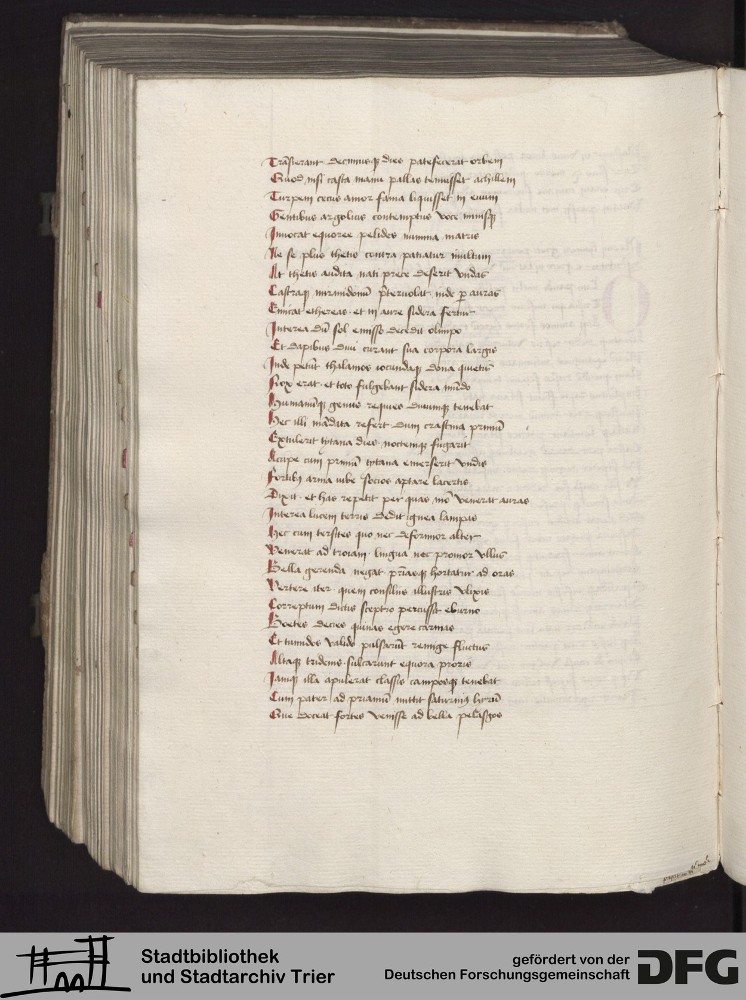 Transierant decimusq dies patefecerat orbem
Quod nisi casta manu pallas tenuisset achillem
Turpem cecus amor fama liquisset in euum
Gentibus argolicis contemptus voce minisq
Inuocat equoree pelides numina matris
Ne se plus thetis contra patiatur inultum
At thetis audita nati prece deserit vndas
Castraq mirmidonum preteruolat inde per auras
Emicat ethereas et in aure sidera fertur
Interea dum sol emisso decedit olimpo
Et dapibus diui curant sua corpora largis
Inde petunt thalamos iocundaq dona quietis
Nox erat et toto fulgebant sidera mundo
Humanumq genus requies diuumq tenebat
Hec illi mandata refert dum crastina primum
Extulerit tytana dies noctemq fugarit
Accipe cum primum tytana emerserit vndis
Fortibus arma iube socios aptare lacertis
Dixit et has repetit per quas modo venerat auras
Interea lucem terris dedit ignea lampas
Hec cum tersites quo nec deformior alter
Venerat ad troiam lingua nec promior vllus
Bella gerenda negat priasq hortatur ad oras
Vertere iter quem consiliis illustris vlixis
Correptum dictis sceptro percussit eburno
Boetes decies quinas egere carinas
Et tumidos valido pulsarunt remige fluctus
Altaq tridenis sulcarunt equora proris
Iamq illa apulerat classis camposq tenebat
Cum pater ad priamum mittit saturnius
Que doceat fortes venisse ad bella pelasgos
Stadtbibliothek
und Stadtarchiv Trier
gefördert von der
Deutschen Forschungsgemeinschaft
DFG